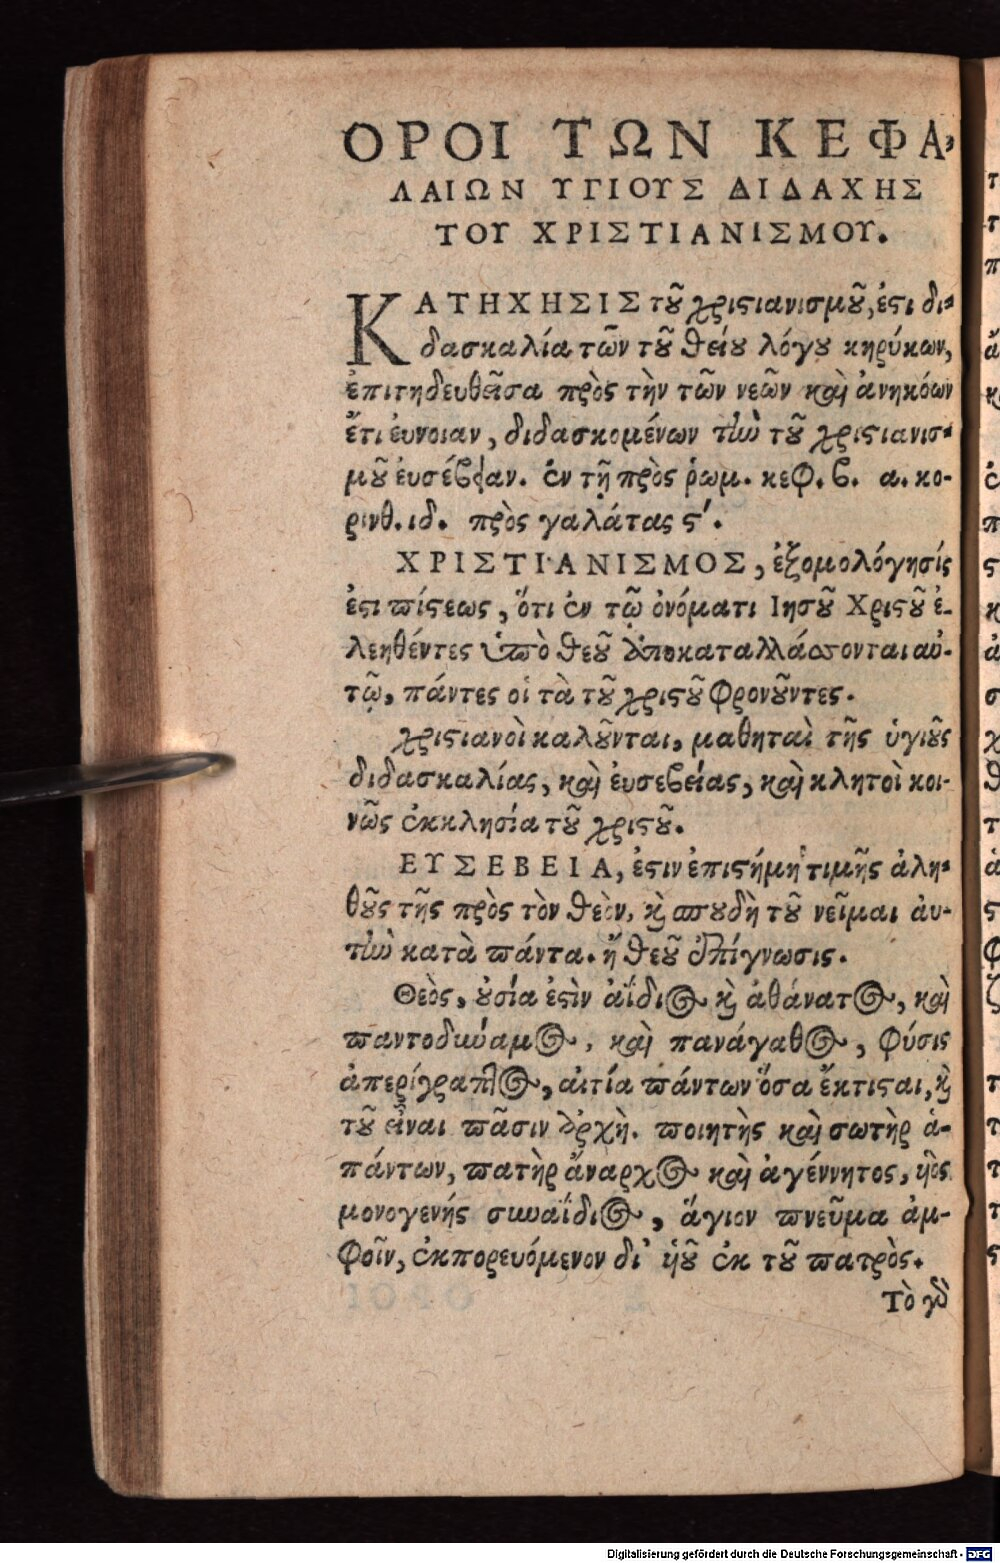 ΟΡΟΙ ΤΩΝ ΚΕΦΑ-
ΛΑΙΩΝ ΥΓΙΟΥΣ ΔΙΔΑΧΗΣ
ΤΟΥ ΧΡΙΣΤΙΑΝΙΣΜΟΥ.
ΚΑΤΗΧΗΣΙΣ τοῦ χριστιανισμοῦ, ἐστι δι-
δασκαλία τῶν τοῦ θείου λόγου κηρύκων,
ἐπιτηδευθεῖσα πρὸς τὴν τῶν νεῶν καὶ ἀνηκόων
ἔτι ἐύνοιαν, διδασκομένων τὴν τοῦ χριστιανισ-
μοῦ ἐυσέβειαν. ἐν τῇ πρὸς ῥωμ. κεφ. β. α. κο-
ρινθ. ιδ. πρὸς γαλάτας ϛ'.
ΧΡΙΣΤΙΑΝΙΣΜΟΣ, ἐξομολόγησίς
ἐστι πίστεως, ὅτι ἐν τῷ ὀνόματι Ιησοῦ Χριστοῦ ἐ-
λεηθέντες ὑπὸ θεοῦ ἀποκαταλλάσσονται αὐ-
τῷ, πάντες οἱ τὰ τοῦ χριστοῦ φρονοῦντες.
χριστιανοὶ καλοῦνται, μαθηταὶ τῆς ὑγιοῦς
διδασκαλίας, καὶ ἐυσεβείας, καὶ κλητοὶ κοι-
νῶς ἐκκλησία τοῦ χριστοῦ.
ΕΥΣΕΒΕΙΑ, ἐστιν ἐπιστήμη τιμῆς ἀλη-
θοῦς τῆς πρὸς τὸν θεὸν, καὶ σπουδὴ τοῦ νεῖμαι ἀυ-
τὴν κατὰ πάντα. ἢ θεοῦ ἐπίγνωσις.
Θεὸς, οὐσία ἐστὶν ἀΐδιος καὶ ἀθάνατος, καὶ
παντοδύναμος, καὶ πανάγαθος, φύσις
ἀπερίγραπτος, αἰτία πάντων ὅσα ἔκτισται, καὶ
τοῦ εἶναι πᾶσιν ἀρχὴ. ποιητὴς καὶ σωτὴρ ἁ-
πάντων, πατὴρ ἄναρχος καὶ ἀγέννητος, υἱὸς
μονογενής συναΐδιος, ἅγιον πνεῦμα ἀμ-
φοῖν, ἐκπορευόμενον δι' υἱοῦ ἐκ τοῦ πατρὸς.
Τὸ γὰρ
Digitalisierung gefördert durch die Deutsche Forschungsgemeinschaft - DFG